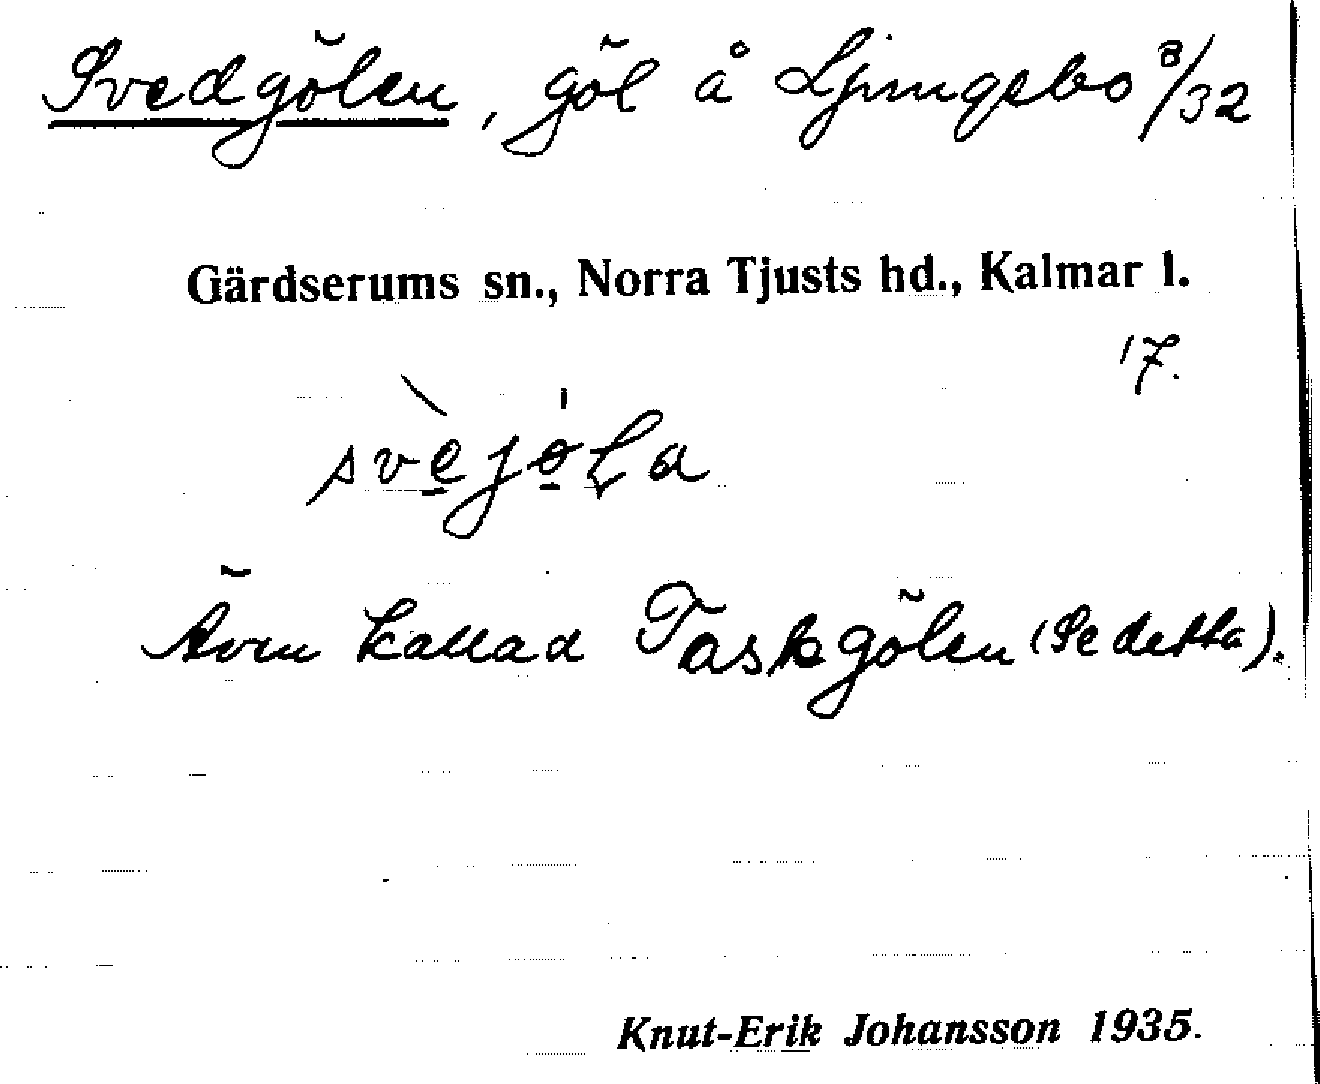 Svedgölen, göl å Ljungebo 8/32
Gärdserums sn., Norra Tjusts hd., Kalmar l.
17.
Även kallad Taskgölen (Se detta).
Knut-Erik Johansson 1935.